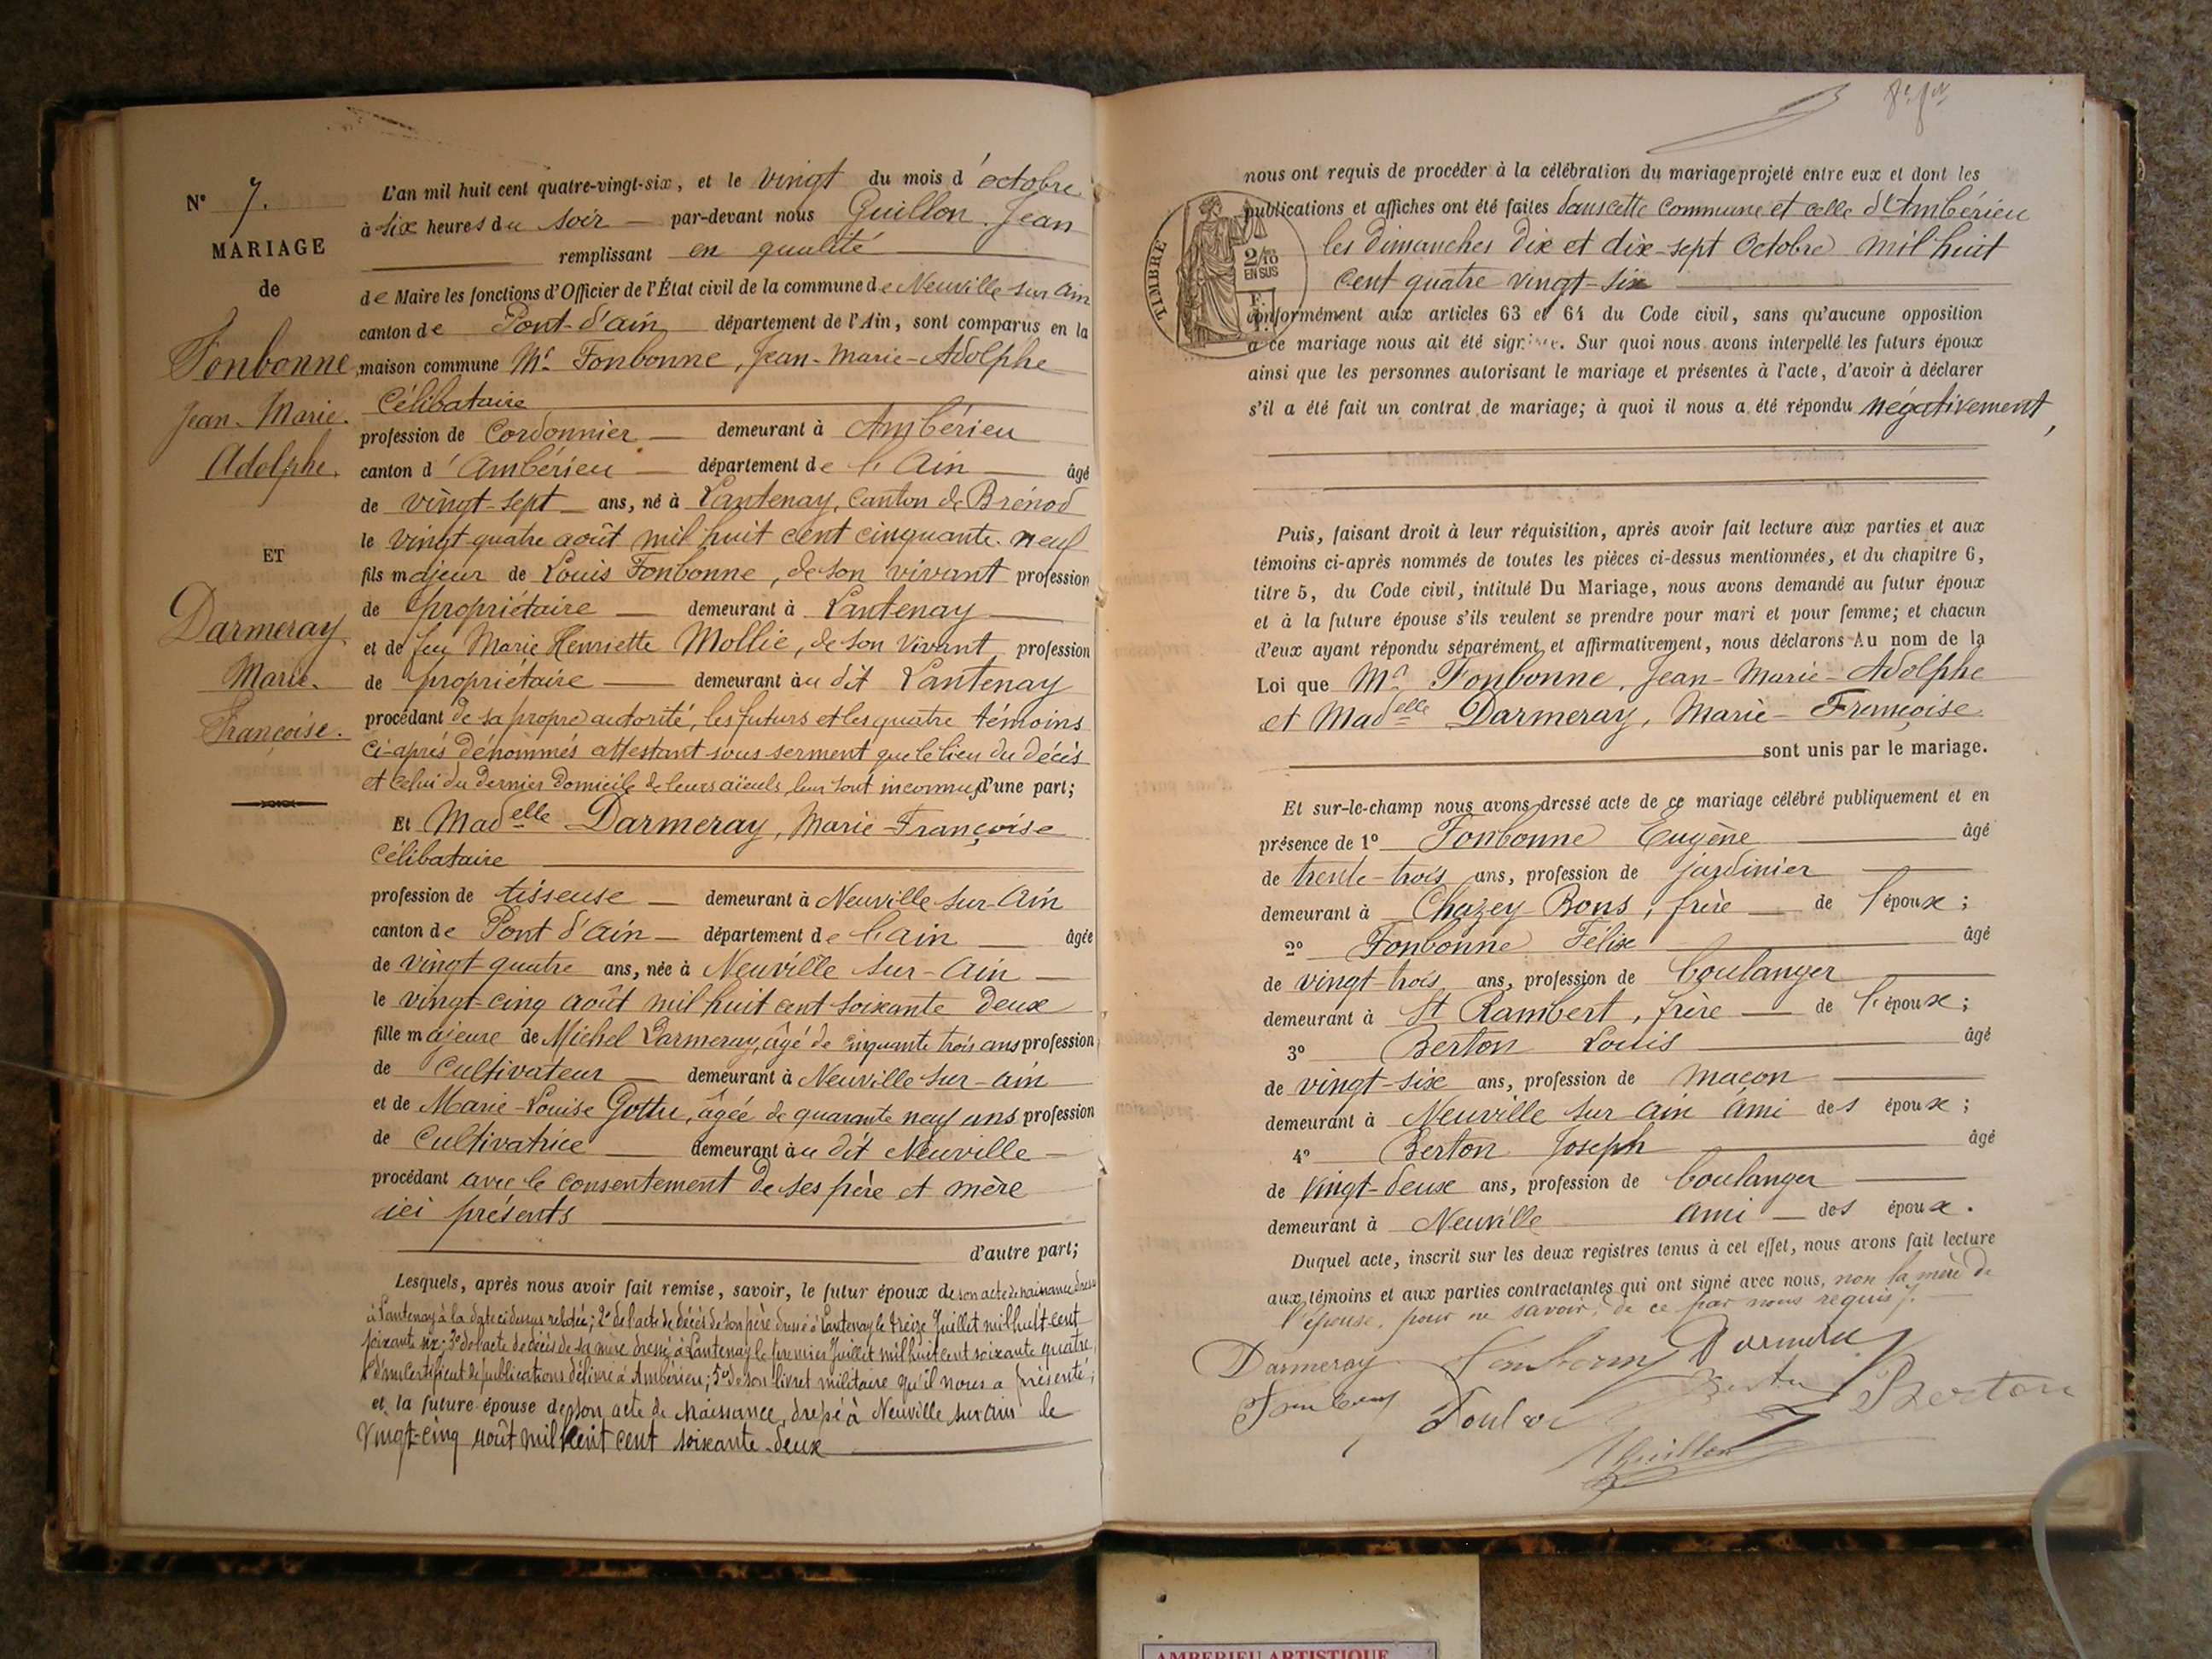 N° 7.
MARIAGE
de
Fonbonne,
Jean-Marie.
Adolphe.
ET
Darmeray
Marie.
Françoise.
L'an mil huit cent quatre-vingt-six, et le vingt du mois d'octobre
à six heures du soir — par-devant nous Guillon Jean
remplissant en qualité
de Maire les fonctions d'Officier de l'État civil de la commune de Neuville sur Ain
canton de Pont-d'ain, département de l'Ain, sont comparus en la
maison commune Mr. Fonbonne, Jean-Marie-Adolphe
Célibataire
profession de Cordonnier — demeurant à Ambérieu
canton d'Ambérieu — département de l'Ain — âgé
de vingt-sept — ans, né à Lantenay, Canton de Brénod
le vingt quatre août mil huit cent cinquante-neuf
fils majeur de Louis Fonbonne, de son vivant profession
de propriétaire — demeurant à Lantenay
et de feu Marie Henriette Mollie, de son vivant profession
de propriétaire — demeurant au dit Lantenay
procédant de sa propre autorité, les futurs et les quatre témoins
ci-après dénommés attestant sous serment que le lieu du décès
et celui du dernier domicile de leurs aïeuls, leur sont inconnus, d'une part;
Et Madelle Darmeray, Marie-Françoise
Célibataire
profession de tisseuse — demeurant à Neuville sur-Ain
canton de Pont d'Ain — département de l'ain — âgée
de vingt-quatre ans, née à Neuville sur-Ain —
le vingt-cinq août mil huit cent soixante deux
fille majeure de Michel Darmeray, âgé de cinquante trois ans profession
de Cultivateur — demeurant à Neuville sur-ain
et de Marie-Louise Gottu, âgée de quarante neuf ans profession
de Cultivatrice — demeurant au dit Neuville —
procédant avec le consentement de ses père et mère
ici présents
d'autre part;
Lesquels, après nous avoir fait remise, savoir, le futur époux de son acte de naissance dressé
à Lantenay à la date ci dessus relatée; 2° de l'acte de décès de son père dressé à Lantenay le treize Juillet mil huit cent
soixante six; 3° de l'acte de décès de sa mère dressé à Lantenay le premier Juillet mil huit cent soixante quatre,
4° d'un certificat de publications délivré à Ambérieu; 5° de son livret militaire qu'il nous a présenté;
et la future épouse de son acte de naissance, dressé à Neuville sur ain le
Vingt-cinq août mil huit cent soixante-deux
TIMBRE
2/10
EN SUS
nous ont requis de procéder à la célébration du mariage projeté entre eux et dont les
publications et affiches ont été faites dans cette commune et celle d'Ambérieu
les dimanches dix et dix-sept Octobre mil huit
cent quatre vingt-six
conformément aux articles 63 et 64 du Code civil, sans qu'aucune opposition
à ce mariage nous ait été signifiée. Sur quoi nous avons interpellé les futurs époux
ainsi que les personnes autorisant le mariage et présentes à l'acte, d'avoir à déclarer
s'il a été fait un contrat de mariage; à quoi il nous a été répondu négativement,
Puis, faisant droit à leur réquisition, après avoir fait lecture aux parties et aux
témoins ci-après nommés de toutes les pièces ci-dessus mentionnées, et du chapitre 6,
titre 5, du Code civil, intitulé Du Mariage, nous avons demandé au futur époux
et à la future épouse s'ils veulent se prendre pour mari et pour femme; et chacun
d'eux ayant répondu séparément et affirmativement, nous déclarons Au nom de la
Loi que Mr. Fonbonne, Jean-Marie-Adolphe
et Madelle Darmeray, Marie-Françoise
sont unis par le mariage.
Et sur-le-champ nous avons dressé acte de ce mariage célébré publiquement et en
présence de 1° Fonbonne Eugène — âgé
de trente-trois ans, profession de jardinier
demeurant à Chazey-Bons, frère — de l'époux;
2° Fonbonne Félix — âgé
de vingt-trois ans, profession de boulanger
demeurant à St Rambert, frère — de l'époux;
3° Berton Louis — âgé
de vingt-six ans, profession de maçon
demeurant à Neuville sur Ain ami des époux;
4° Berton Joseph — âgé
de vingt-deux ans, profession de boulanger
demeurant à Neuville ami — des époux.
Duquel acte, inscrit sur les deux registres tenus à cet effet, nous avons fait lecture
aux témoins et aux parties contractantes qui ont signé avec nous, non la mère de
l'épouse, pour ne savoir, de ce par nous requis.
Darmeray
Berton
Guillon
AMBERIEU ARTISTIQUE